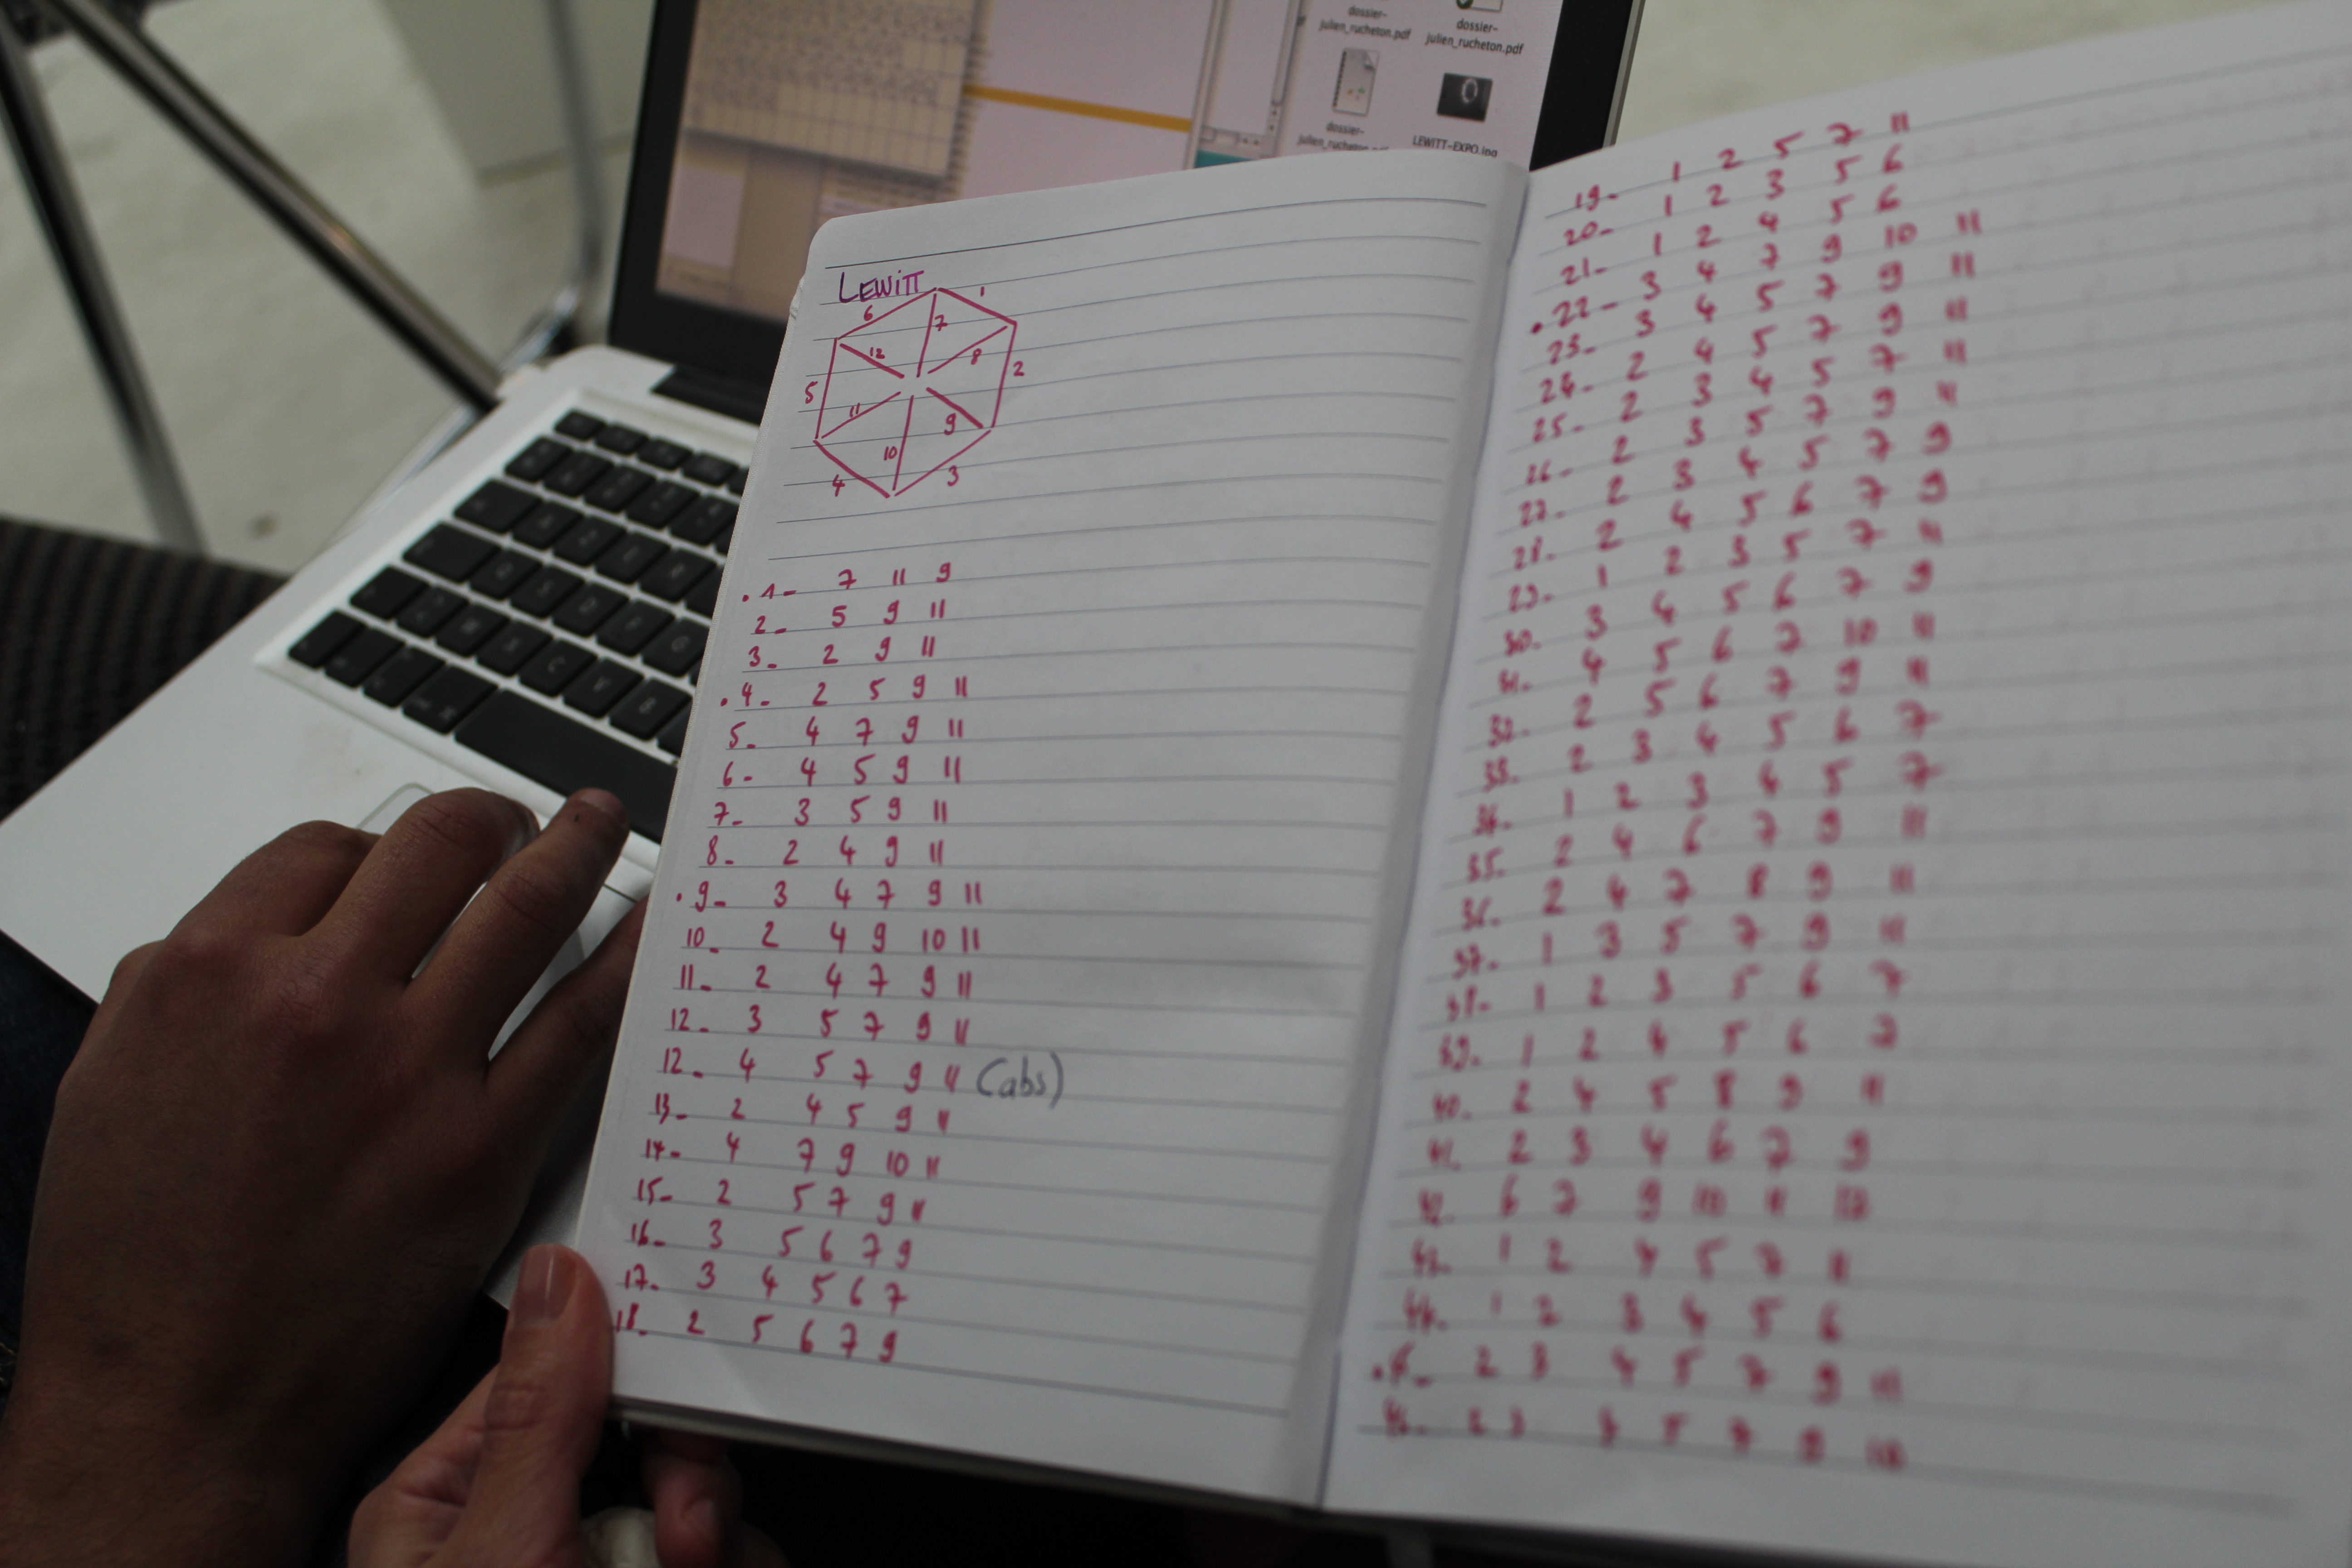 dossier-
julien_rucheton.pdf
dossier-
julien_rucheton.pdf
dossier-
LEWITT-EXPO.jpg
LEWITT
6
1
7
12
8
5
2
11
9
10
4
3
.1- 7 11 9
2- 5 9 11
3- 2 9 11
.4- 2 5 9 11
5- 4 7 9 11
6- 4 5 9 11
7- 3 5 9 11
8- 2 4 9 11
.9- 3 4 7 9 11
10- 2 4 9 10 11
11- 2 4 7 9 11
12- 3 5 7 9 11
12- 4 5 7 9 11 (abs)
13- 2 4 5 9 11
14- 4 7 9 10 11
15- 2 5 7 9 11
16- 3 5 6 7 9
17- 3 4 5 6 7
18- 2 5 6 7 9
19- 1 2 5 7 11
20- 1 2 3 5 6
21- 1 2 4 5 6
.22- 3 4 7 9 10 11
23- 3 4 5 7 9 11
24- 2 4 5 7 9 11
25- 2 3 4 5 7 11
26- 2 3 5 7 9 11
27- 2 3 4 5 7 9
28- 2 4 5 6 7 9
29- 1 2 3 5 7 11
30- 3 4 5 6 7 9
31- 4 5 6 7 10 11
32- 2 5 6 7 9 11
33- 2 3 4 5 6 7
34- 1 2 3 4 5 7
35- 2 4 6 7 9 11
36- 2 4 7 8 9 11
37- 1 3 5 7 9 11
38- 1 2 3 5 6 7
39- 1 2 4 5 6 7
40- 2 4 5 8 9 11
41- 2 3 4 6 7 9
42- 6 7 9 10 11 12
43- 1 2 4 5 7 11
44- 1 2 3 4 5 6
2 3 4 5 7 9 11
2 3 5 7 9